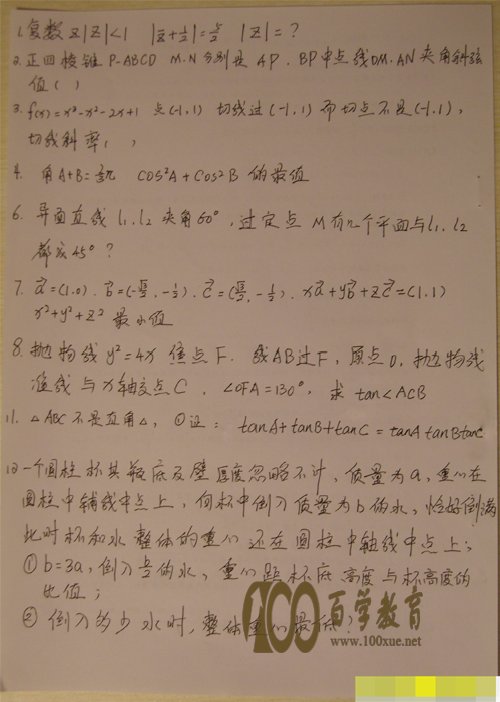 1. 复数 z |z|<1 |z̄+1/z|=5/2 |z|=?
2. 正四棱锥 P-ABCD M.N 分别是 AP. BP中点线DM.AN夹角斜弦
值( )
3. f(x)=x³-x²-2x+1 点(-1,1) 切线过(-1,1)而切点不是(-1,1),
切线斜率( )
4. 角A+B= cos²A+cos²B 的最值
6. 异面直线 l₁.l₂ 夹角60°,过定点 M有几个平面与l₁.l₂
都成45°?
7. a⃗=(1.0). b⃗=(-√3/2,-1/2). c⃗=(√3/2,-1/2). xa⃗+yb⃗+zc⃗=(1,1)
x²+y²+z² 最小值
8. 抛物线y²=4x 焦点F. 线AB过F,原点O,抛物线
准线与x轴交点C. ∠OFA=130°,求 tan∠ACB
11. △ABC不是直角△,①证: tanA+tanB+tanC=tanAtanBtanC
12 一个圆柱杯其瓶底及壁厚度忽略不计,质量为a,重心在
圆柱中轴线中点上,向杯中倒入质量为b的水,恰好倒满
此时杯和水整体的重心还在圆柱中轴线中点上;
①b=3a,倒入 的水,重心距杯底高度与杯高度的
比值;
②倒入多少水时,整体重心最低?
100百学教育
www.100xue.net